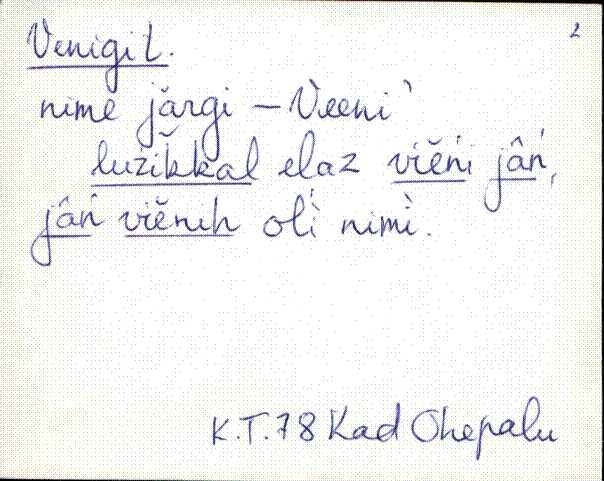 2
Venigil.
nime järgi – Veeni'
lužikkal elaz viěńi jâń,
jâń viěnih oĺì nimì.
K.T. 78 Kad Ohepalu